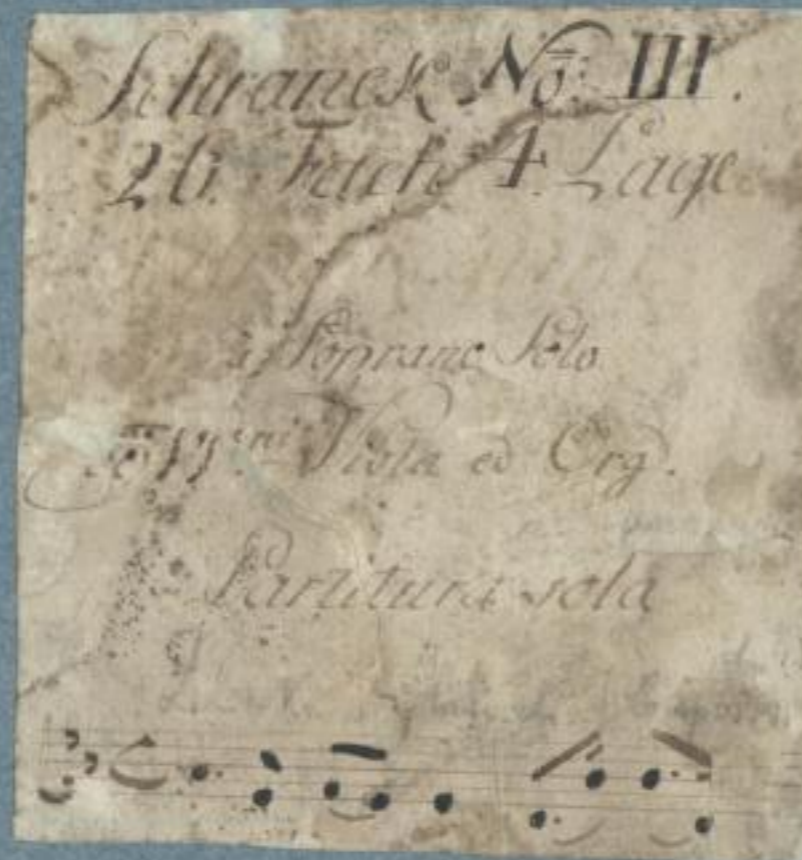 Schranck No: III.
26. Fach 4. Lage
à Soprano Solo
VV.ni Viola ed Org.
Partitura sola